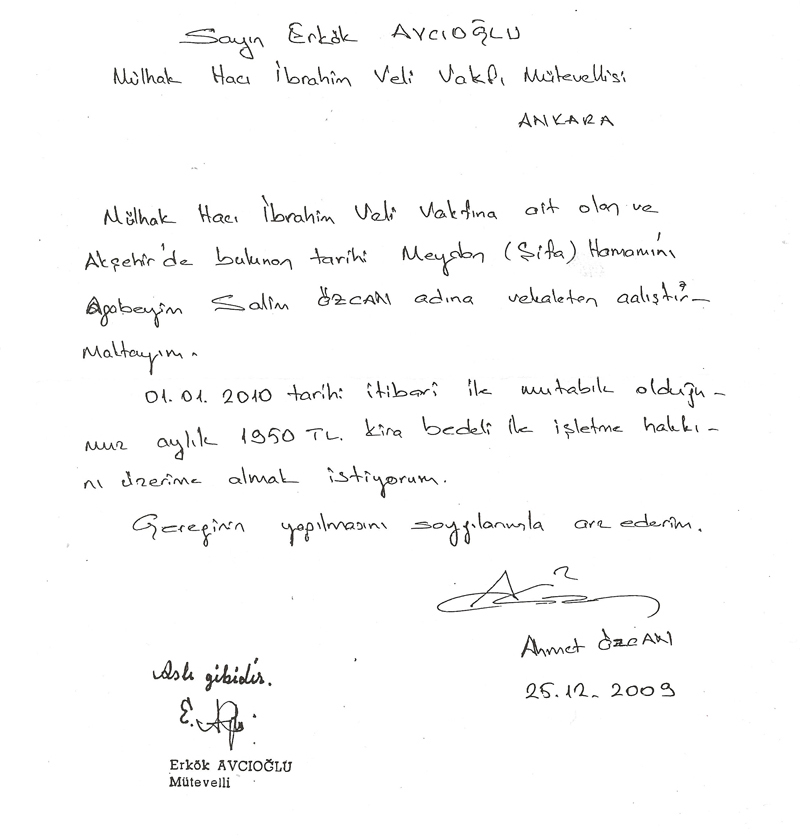 Sayın Erkök AVCIOĞLU
Mülhak Hacı İbrahim Veli Vakfı Mütevellisi
ANKARA
Mülhak Hacı İbrahim Veli Vakfına ait olan ve
Akşehir'de bulunan tarihi Meydan (Şifa) Hamamını
Agabeyim Salim ÖZCAN adına vekaleten çalıştır-
maktayım.
01.01.2010 tarihi itibari ile mutabık olduğu-
muz aylık 1950 TL. kira bedeli ile işletme hakkı-
nı üzerime almak istiyorum.
Gereğinin yapılmasını saygılarımla arz ederim.
Ahmet ÖZCAN
25.12.2009
Aslı gibidir.
Erkök AVCIOĞLU
Mütevelli